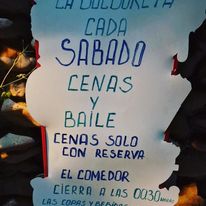 LA BULBURETA
CADA
SABADO
CENAS
Y
BAILE
CENAS SOLO
CON RESERVA
EL COMEDOR
CIERRA A LAS 00:30
LAS COPAS Y BEBIDAS